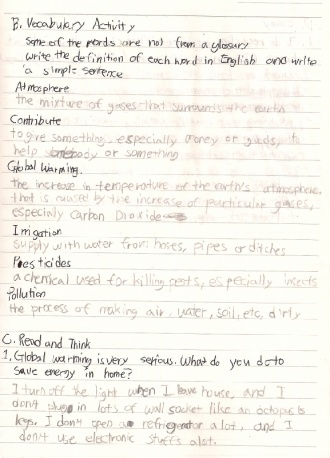 B. Vocabulary Activity
Some of the words are not from a glossary
write the definition of each word in English and write
a simple sentence
Atmosphere
the mixture of gases that surrounds the earth
Contribute
to give something, especially money or goods, to
help somebody or something
Global Warming.
the increase in temperature of the earth's atmosphere,
that is caused by the increase of particular gases,
especialy Carbon Dioxide
Irrigation
Supply with water from hoses, pipes or ditches
Pesticides
a chemical used for killing pests, especially insects
Pollution
the process of making air, water, soil, etc, dirty
C. Read and Think
1. Global warming is very serious. What do you do to
save energy in home?
I turn off the light when I leave house, and I
don't in lots of wall socket like an octopus
legs. I don't open a refrigerator a lot, and I
don't use electronic stuffs alot.